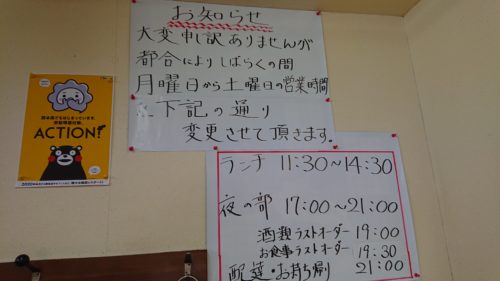 お知らせ
大変申し訳ありませんが
都合によりしばらくの間
月曜日から土曜日の営業時間
下記の通り
変更させて頂きます。
ランチ 11:30~14:30
夜の部 17:00~21:00
酒類ラストオーダー 19:00
お食事ラストオーダー 19:30
配達・お持ち帰り 21:00
ACTION!